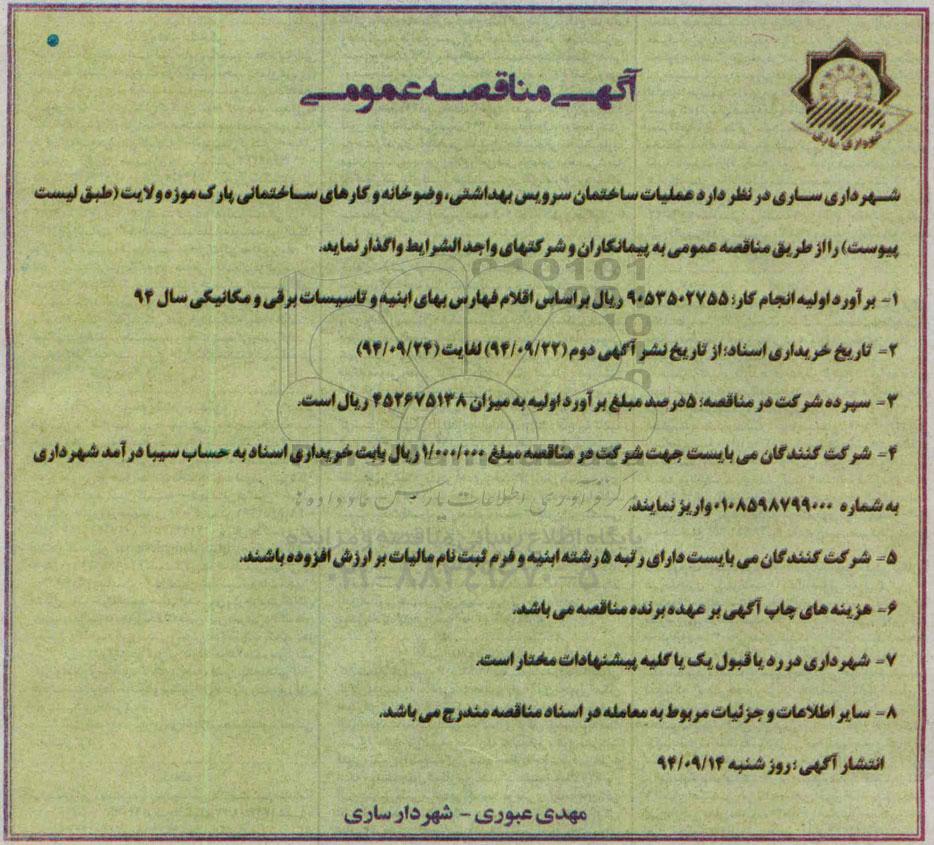 آگهی مناقصه عمومی
شهرداری ساری
شهرداری ساری در نظر دارد عملیات ساختمان سرویس بهداشتی، وضوخانه و کارهای ساختمانی پارک موزه ولایت (طبق لیست
پیوست) را از طریق مناقصه عمومی به پیمانکاران و شرکتهای واجد الشرایط واگذار نماید.
۱- برآورد اولیه انجام کار: ۹۰۵۳۵۰۲۷۵۵ ریال بر اساس اقلام فهارس بهای ابنیه و تاسیسات برقی و مکانیکی سال ۹۴
۲- تاریخ خریداری اسناد: از تاریخ نشر آگهی دوم (۹۴/۰۹/۲۲) لغایت (۹۴/۰۹/۲۴)
۳- سپرده شرکت در مناقصه: ۵درصد مبلغ برآورد اولیه به میزان ۴۵۲۶۷۵۱۳۸ ریال است.
۴- شرکت کنندگان می بایست جهت شرکت در مناقصه مبلغ ۱/۰۰۰/۰۰۰ ریال بابت خریداری اسناد به حساب سیبا درآمد شهرداری
به شماره ۰۱۰۸۵۹۸۷۹۹۰۰۰ واریز نمایند.
مرکز فرآوری اطلاعات پارس نماد داده ها
پایگاه اطلاع رسانی مناقصه و مزایده
۵- شرکت کنندگان می بایست دارای رتبه ۵ رشته ابنیه و فرم ثبت نام مالیات بر ارزش افزوده باشند.
۰۲۱-۸۸۳۴۹۶۷۰-۵
۶- هزینه های چاپ آگهی بر عهده برنده مناقصه می باشد.
۷- شهرداری در رد یا قبول یک یا کلیه پیشنهادات مختار است.
۸- سایر اطلاعات و جزئیات مربوط به معامله در اسناد مناقصه مندرج می باشد.
انتشار آگهی: روز شنبه ۹۴/۰۹/۱۴
مهدی عبوری - شهردار ساری